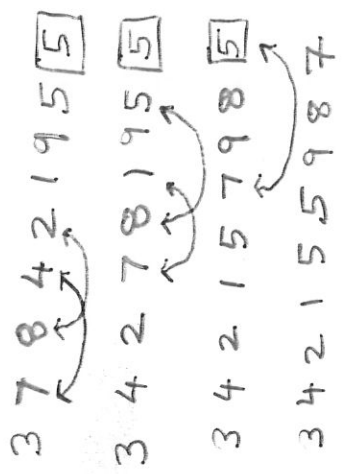 3 7 8 4 2 1 9 5 5
3 4 2 7 8 1 9 5 5
3 4 2 1 5 7 9 8 5
3 4 2 1 5 5 9 8 7